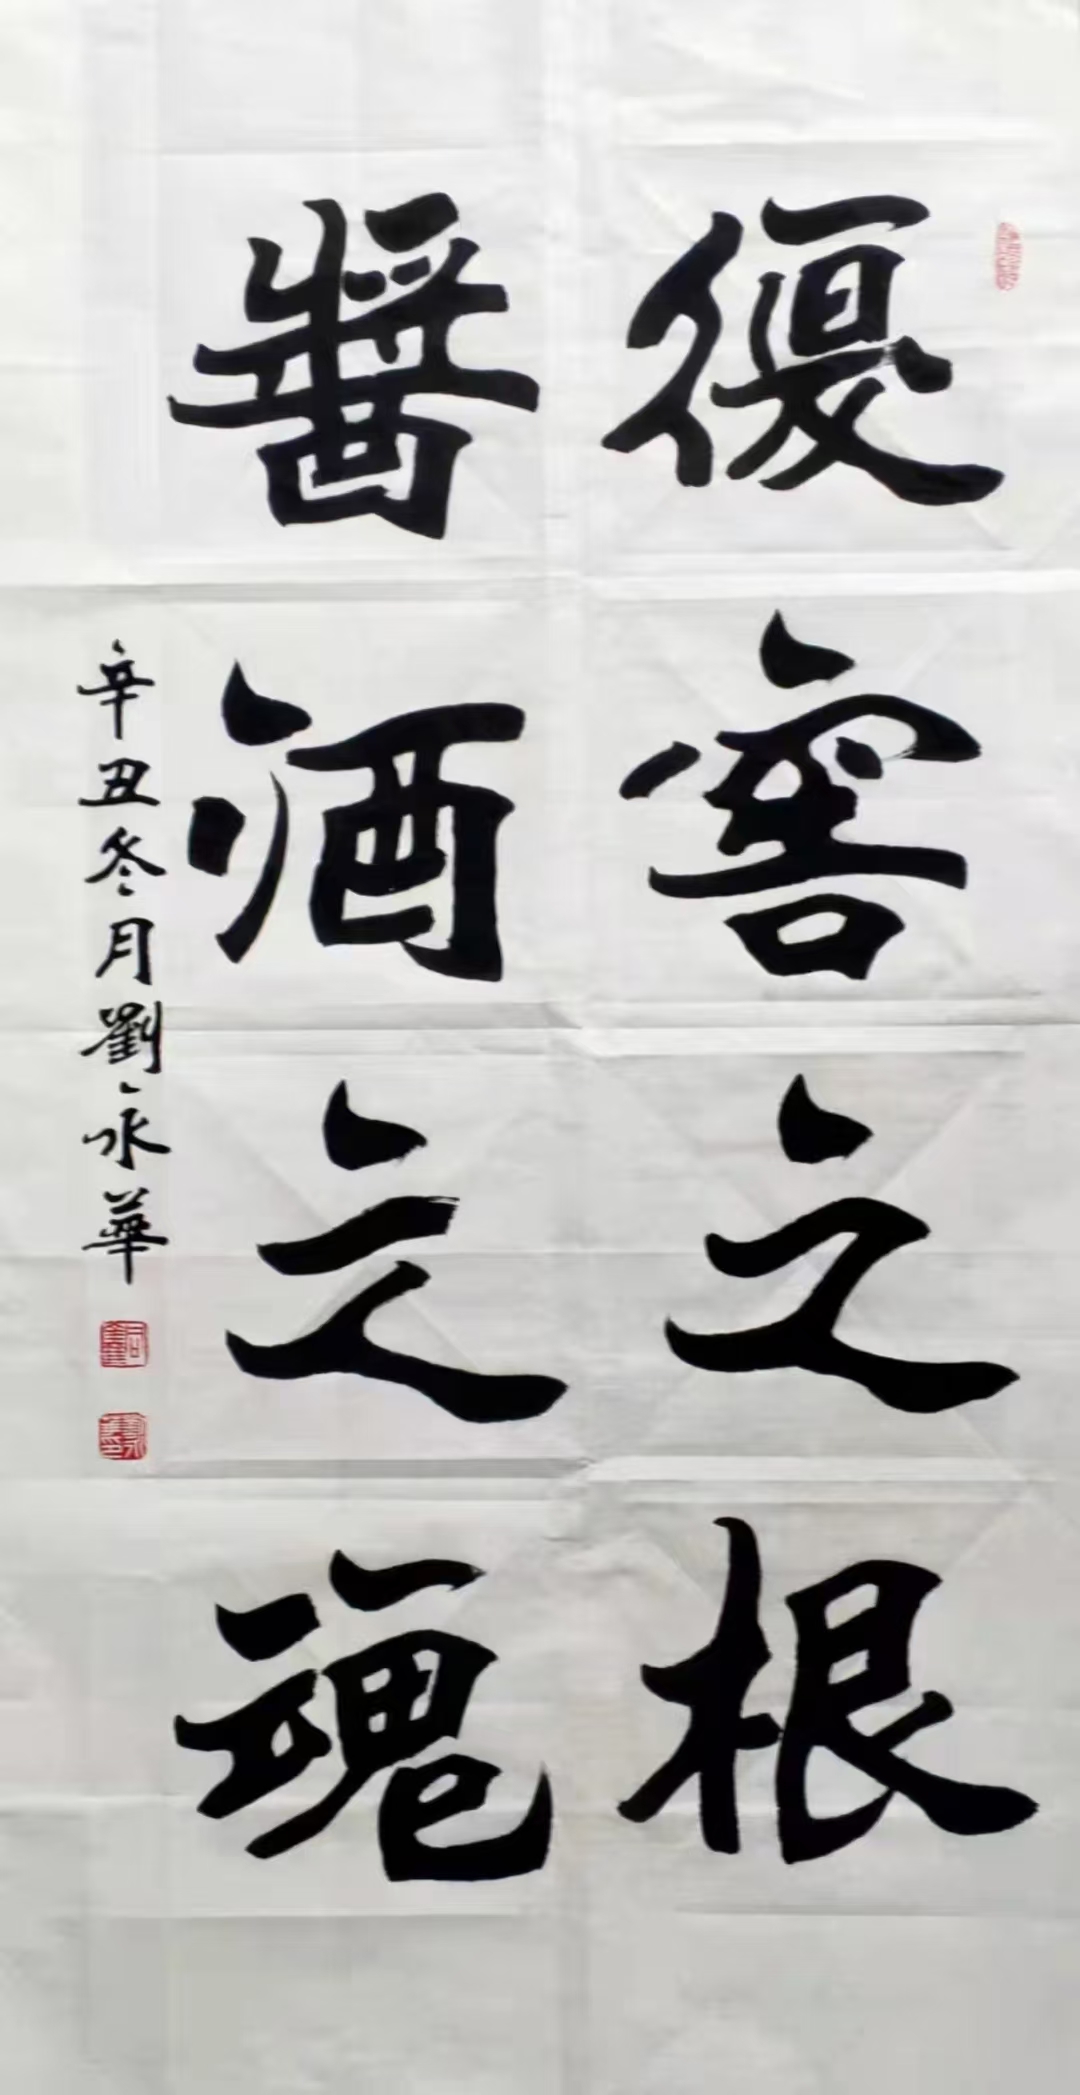 優窖之根
醬酒之魂
辛丑冬月劉永華